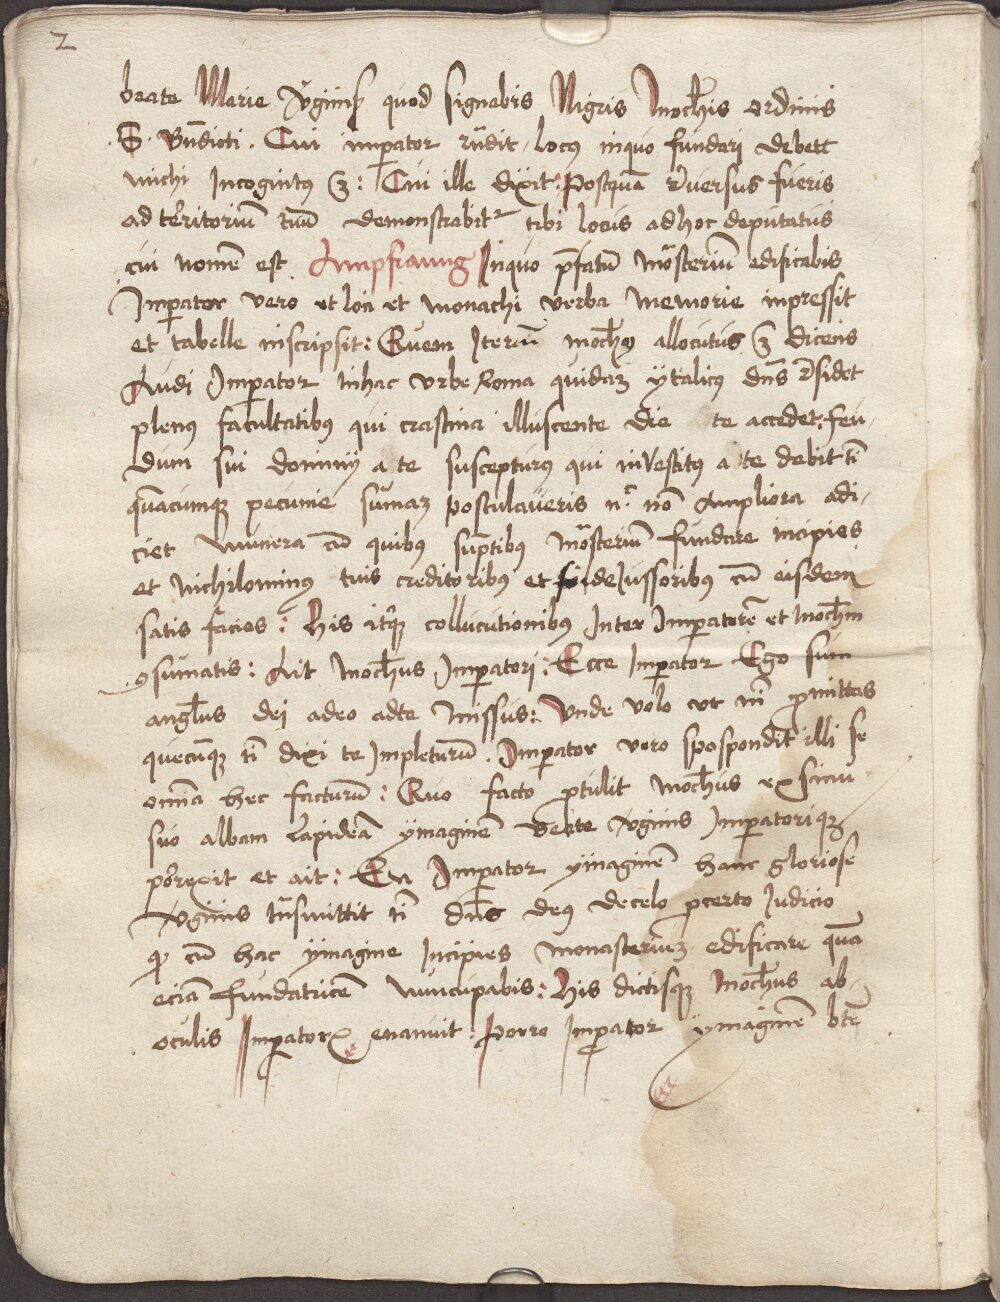 2
beate Marie v̄ginis quod signabis Nigris Mochis ordinis
S. Bn̄dicti. Cui imperator rn̄dit. locus in quo fundari debett
michi Incognitus est: Cui ille dixit: Postquā reuersus fueris
ad territoriū tuū demonstrabitr tibi locus ad hoc deputatus
cui nomē est. Ampfraung In quo p̄fatū mōsteriū edificabis
Imperator vero et loca et monachi verba memorie inpressit
et tabelle inscripsit: Quem Iterū mochus allocutus est dicens
Audi Imperator in hac vrbe Roma quidam ytalicus dn̄s residet
plenus facultatibus qui crastina illuscente die te accedet: feu-
dum sui dominij a te suscepturus qui investitus a te debit ti
quācumque pecunie sūmam postulaueris nec nō Ampliora adi-
ciet munera cū quibus sumptibus mōsteriū fundare incipies
et nichilominus tuis creditoribus et fideiussoribus cū eisdem
satis facies: His itaque collucutionibus Inter Imperatorē et moch̄m
consumatis: Ait mochus Imperatori: Ecce Imperator Ego sum
anglus dei a deo ad te missus: Vnde volo vt mi promittas
quecūque ti dixi te Impleturū. Imperator vero spospondit illi se
omīa hec facturū: Quo facto protulit mochus ex sinu
suo albam lapideā ymaginē beate v̄ginis Imperatorique
porrexit et ait: En Imperator ymaginē hanc gloriose
v̄ginis trāsmittit ti dn̄s deus de celo pro certo Iudicio
quod cū hac ymagine Incipies monasterium edificare quā
eciā fundatricē nuncupabis: His dictisque mochus ab-
oculis Imperatoris euanuit: Porro Imperator ymaginē btē